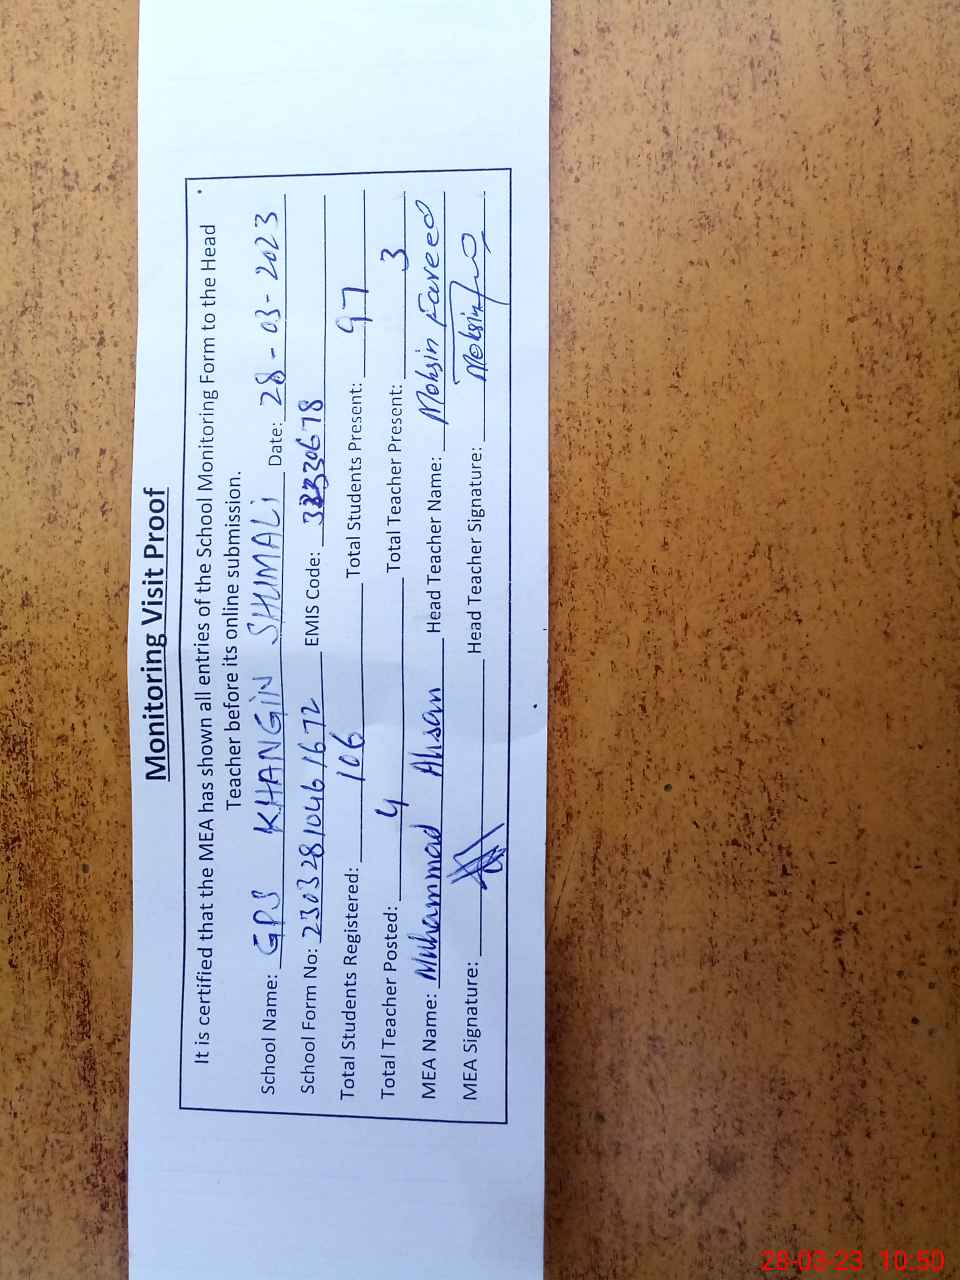 Monitoring Visit Proof
It is certified that the MEA has shown all entries of the School Monitoring Form to the Head
Teacher before its online submission.
School Name: GPS KHANGIN SHUMALi Date: 28-03-2023
School Form No: 23032810461672 EMIS Code: 32330678
Total Students Registered: 106 Total Students Present: 97
Total Teacher Posted: 4 Total Teacher Present: 3
MEA Name: Muhammad Ahsan Head Teacher Name: Mohsin Fareed
MEA Signature: Head Teacher Signature: Mohsin
28-03-23 10:50